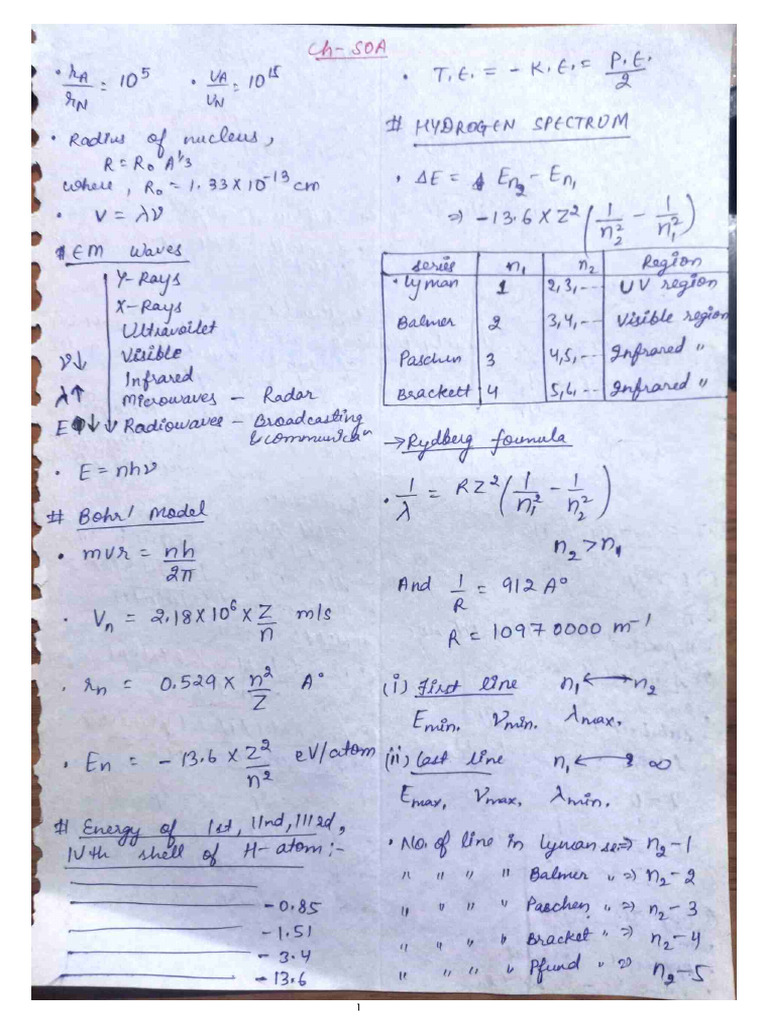 Ch- SOA
• rA/rN = 10⁵ • VA/VN = 10¹⁵
• Radius of nucleus,
R = R₀ A^1/3
where, R₀ = 1.33 × 10⁻¹³ cm
• V = λν
# EM Waves
γ-Rays
X-Rays
Ultravoilet
ν↓ Visible
Infrared
λ↑ Microwaves – Radar
E↓↓ Radiowaves – Broadcasting
& communica
• E = nhν
# Bohr' Model
• mvr = nh/2π
• Vn = 2.18 × 10⁶ × Z/n m/s
• rn = 0.529 × n²/Z A°
• En = - 13.6 × Z²/n² eV/atom
# Energy of 1st, IInd, IIIrd,
IVth shell of H- atom:-
- 0.85
- 1.51
- 3.4
- 13.6
• T.E. = - K.E. = P.E./2
# HYDROGEN SPECTRUM
• ΔE = En₂ - En₁
⇒ -13.6 × Z² (1/n₂² - 1/n₁²)
Series n₁ n₂ Region
• Lyman 1 2,3,--- UV region
Balmer 2 3,4,--- Visible region
Paschen 3 4,5,--- Infrared "
Brackett 4 5,6,--- Infrared "
→ Rydberg foumula
• 1/λ = RZ² (1/n₁² - 1/n₂²)
n₂ > n₁
And 1/R = 912 A°
R = 10970000 m⁻¹
(i) First line n₁ ⟷ n₂
Emin. νmin. λmax.
(ii) Last line n₁ ⟷ ∞
Emax, νmax, λmin.
• No. of line in lyman se. ⇒ n₂-1
" " " " Balmer " ⇒ n₂-2
" " " " Paschen " ⇒ n₂-3
" " " " Bracket " ⇒ n₂-4
" " " " Pfund " ⇒ n₂-5
1